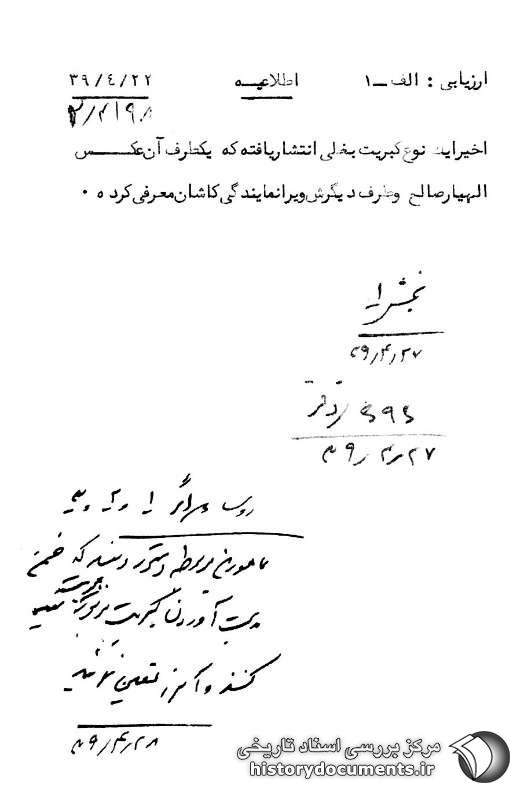 ارزیابی : الف ــ ۱ اطلاعیــه ۳۹/۴/۲۲
۲/۴۱۹۸
اخیرایك نوع کبریت بغلی انتشاریافته که یکطرف آن عکــــس
الهیارصالح وطرف دیگرش ویرانمایندگی کاشان معرفی کرده ۰
بخش ۱
۳۹/۴/۲۷
۳۹/۴/۲۷
مامورین مربوطه دستور دهند که ضمن
بدست آوردن کبریت مزبور
کنند و آمرز تعیین نمایند
۳۹/۴/۲۸
مرکز بررسی اسناد تاریخی
historydocuments.ir